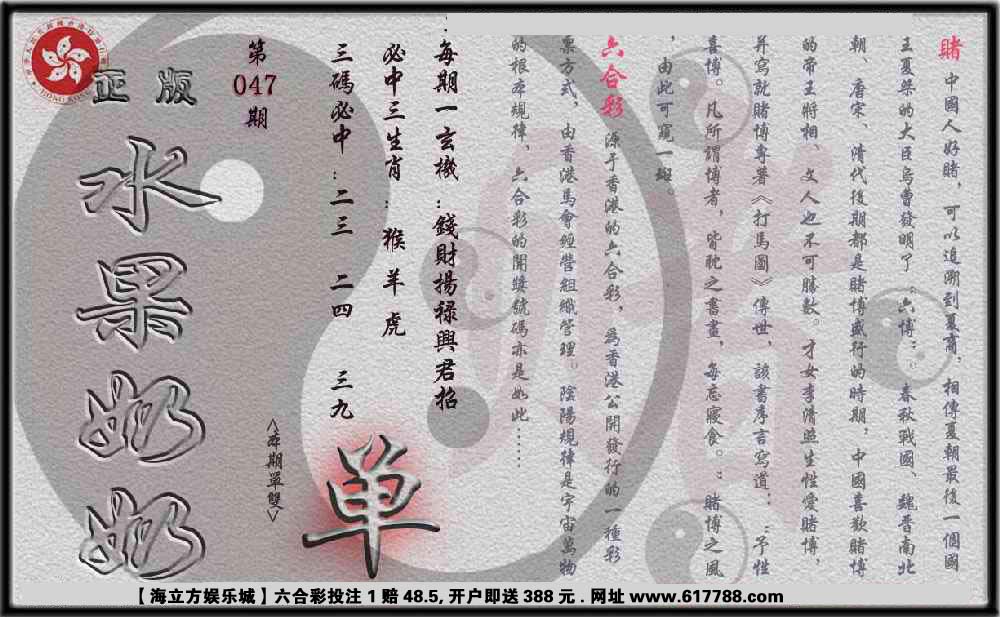 賭 中國人好賭，可以追溯到夏商，相傳夏朝最後一個國
王夏桀的大臣烏曹發明了“六博”，春秋戰國、魏晋南北
朝、唐宋、清代後期都是賭博盛行的時期，中國喜歡賭博
的帝王將相、文人也不可勝數。才女李清照生性愛賭博，
并寫就賭博專著《打馬圖》傳世，該書序言寫道：“予性
喜博。凡所謂博者，皆耽之書畫，每忘寢食。”賭博之風
，由此可窺一斑。
六合彩 源于香港的六合彩，為香港公開發行的一種彩
票方式，由香港馬會經營組織管理。陰陽規律是宇宙萬物
的根本規律，六合彩的開獎號碼亦是如此……
每期一玄機：錢財揚禄興君招
必中三生肖：猴 羊 虎
三碼必中：二三 二四 三九
〈本期單雙〉
单
第
047
期
正版
水果奶奶
【海立方娱乐城】六合彩投注1赔48.5,开户即送388元.网址www.617788.com